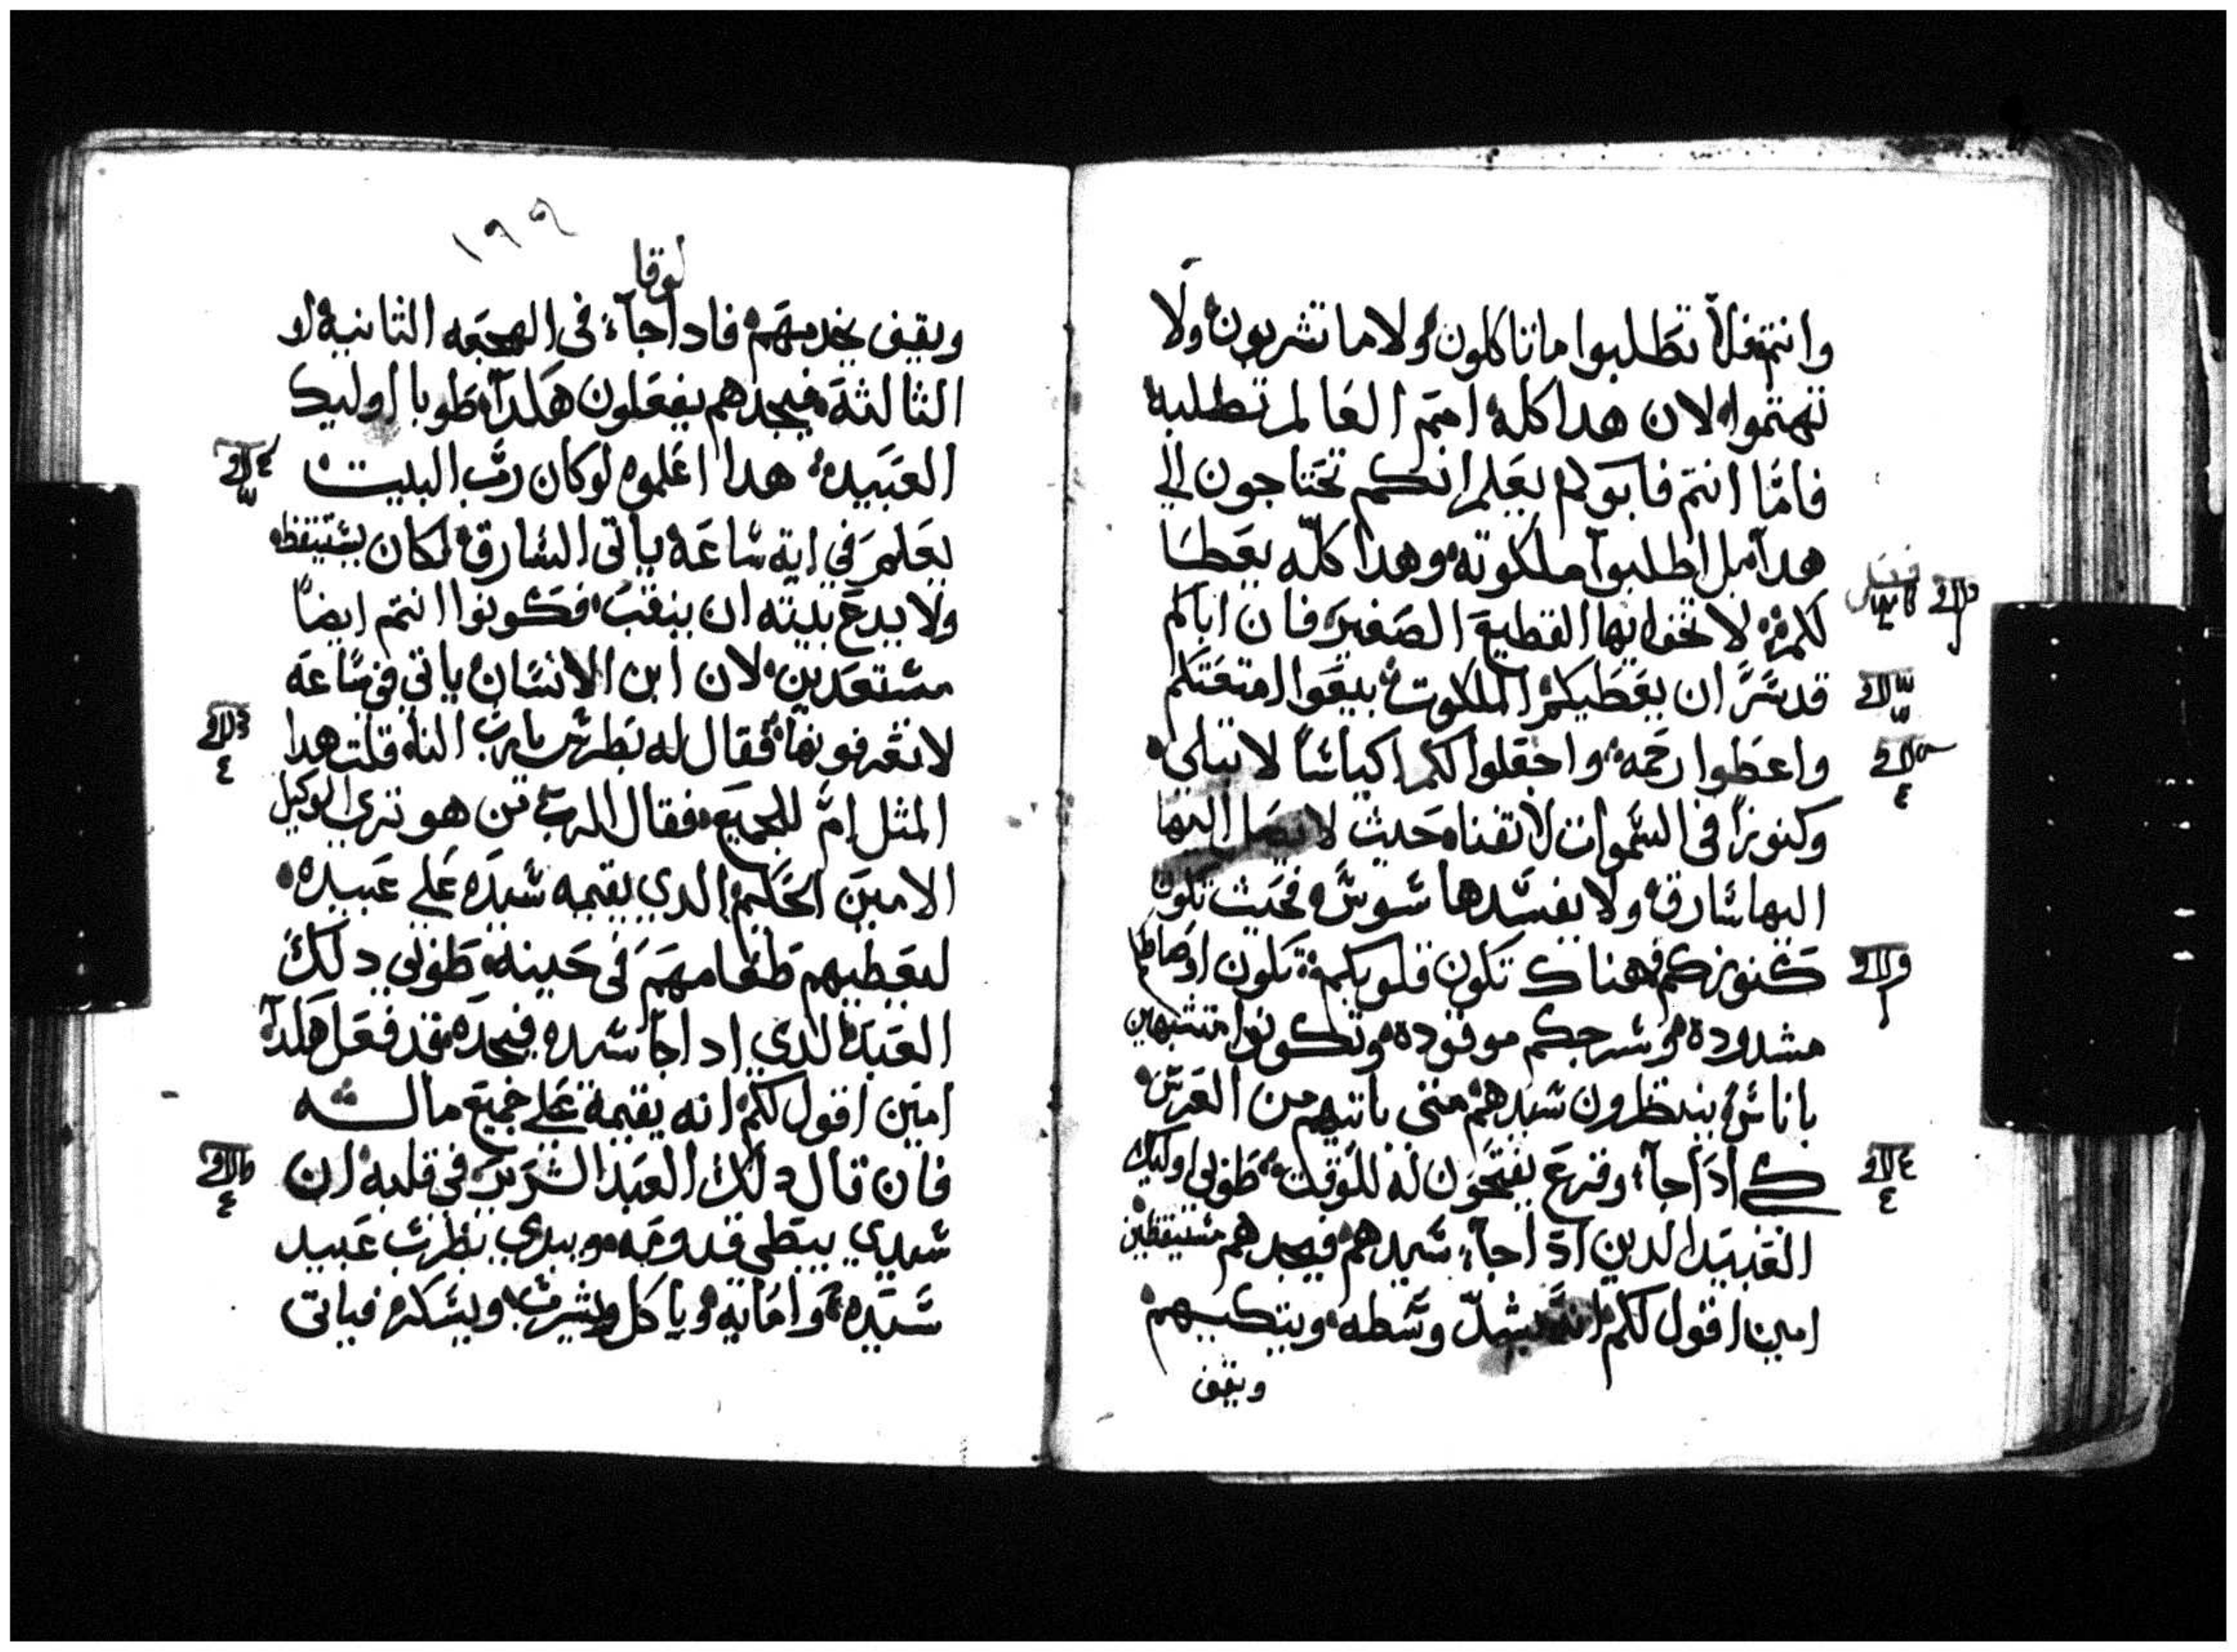 وانتم فلا تطلبوا ما تاكلون ولا ما تشربون ولا
تهتموا لان هدا كله امم العالم تطلبه
فاما انتم فابوكم يعلم انكم تحتاجون الي
هدا بل اطلبوا ملكوته وهدا كله يعطا
لكم لا تخف ايها القطيع الصغير فان اباكم
قد سر ان يعطيكم الملكوت بيعوا امتعتكم
واعطوا رحمه واجعلوا لكم اكياسا لا تبلي
وكنوزا في السموات لا تفنا حيث لا يصل اليها
اليها سارق ولا يفسدها سوس فحيث تكون
كنوزكم فهناك تكون قلوبكم تكون اوساطكم
مشدوده وسرجكم موقوده وتكونوا متشبهين
باناس ينتظرون سيدهم متي ياتيهم من العرس
كي ادا جآء وقرع يفتحون له للوقت طوبي اوليك
العبيد الدين ادا جآء سيدهم فيجدهم مستيقظين
امين اقول لكم انه يشد وسطه ويتكيهم
ويقف
١٩٩
لوقا
ويقف يخدمهم فادا جآء في الهجعه الثانيه او
الثالثه فيجدهم يفعلون هكدا طوبا اوليك
العبيد هدا اعلموه لو كان رب البيت
يعلم في اية ساعه ياتي السارق لكان يستيقظ
ولا يدع بيته ان ينقب فكونوا انتم ايضا
مستعدين لان ابن الانسان ياتي في ساعه
لا تعرفونها فقال له بطرس يارب النا قلت هدا
المثل ام للجميع فقال الرب من هو تري الوكيل
الامين الحكيم الدي يقيمه سيده علي عبيده
ليعطيهم طعامهم في حينه طوبي دلك
العبد الدي ادا جا سيده فيجده قد فعل هكدا
امين اقول لكم انه يقيمه علي جميع ماله
فان قال دلك العبد الشرير في قلبه ان
سيدي يبطي قدومه ويبدي يضرب عبيد
سيده وامايه وياكل ويشرب ويسكر فياتي